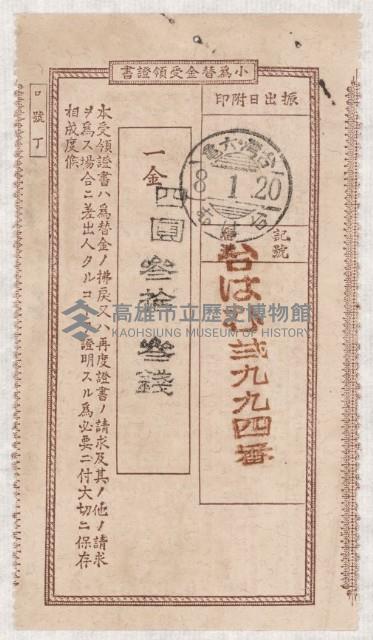 小為替金受領證書
振出日附印
記號
番
台は
九九四番
一金
四圓
參拾
參錢
本受領證書ハ為替金ノ拂戾又ハ再度證書ノ請求及其ノ他ノ請求
ヲ為ス場合ニ差出人タルコ
證明スル為必要ニ付大切ニ保存
相成度候
口號丁
8.1.20
高雄市立歷史博物館
KAOHSIUNG MUSEUM OF HISTORY